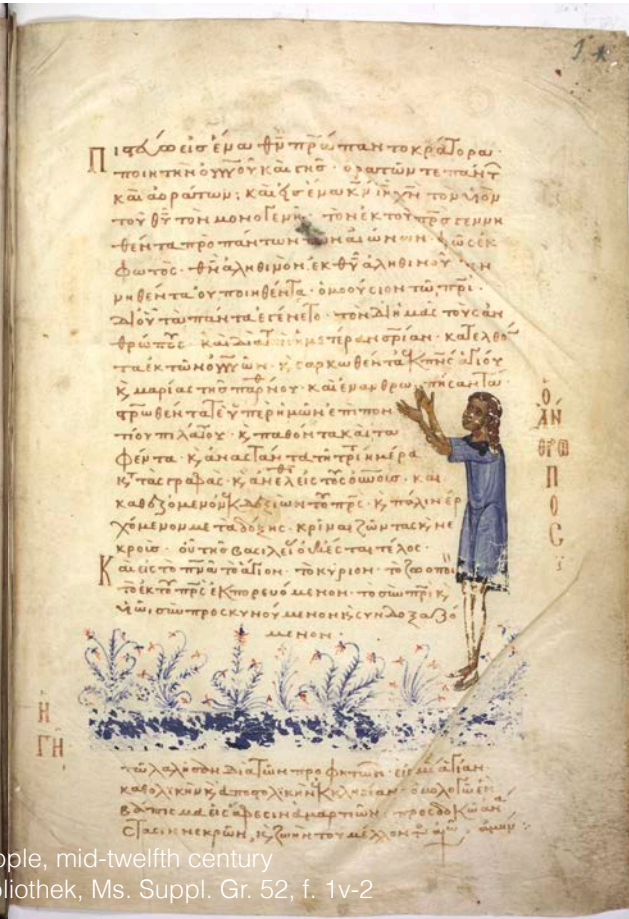 Πιστεύω εἰς ἕνα θν πρα παντοκράτορα·
ποιητὴν οὐνοῦ καὶ γῆς· ὁρατῶν τε πάντ
καὶ ἀοράτων· καὶ εἰς ἕνα κν ιν χν τὸν υἱὸν
τοῦ θυ τὸν μονογενῆ· τὸν ἐκ τοῦ πρς γεννη
θέντα πρὸ πάντων τῶν αἰώνων· φῶς ἐκ
φωτὸς· θν ἀληθινὸν ἐκ θυ ἀληθινοῦ
νηθέντα οὐ ποιηθέντα· ὁμοούσιον τῶ πρι·
δι οὗ τὰ πάντα ἐγένετο· τὸν δι ἡμᾶς τοὺς ἀν
θρώπους· καὶ διὰ τὴν ἡμετέραν σριαν· κατελθό
τα ἐκ τῶν οὐνῶν· κ σαρκωθέντα ἐκ πνς ἁγίου
κ μαρίας τῆς παρθνου· καὶ ἐνανθρωπήσαντα
στρωθέντα τε ὑπὲρ ἡμῶν ἐπὶ πον
τίου πιλάτου· κ παθόντα καὶ τα
φέντα· κ ἀναστάντα τῆ τρι ἡμέρα
κ τὰς γραφὰς· κ εἰς τοὺς οὐνοὺς· καὶ
καθεζόμενον ἐκ δεξιῶν τοῦ πρς· κ πάλιν ἐρ
χόμενον μετὰ δόξης· κρῖναι ζῶντας κ νε
κροὺς· οὗ τῆς βασιλείας οὐκ ἔσται τέλος·
Καὶ εἰς τὸ πνα τὸ ἅγιον· τὸ κύριον· τὸ ζωοποι
τὸ ἐκ τοῦ πρς ἐκπορευόμενον· τὸ σὺν πρι κ
υἱῶ, συμπροσκυνούμενον κ συνδοξαζό
μενον·
ὁ ἄνθρωπος
ἡ γῆ
τὸ λαλῆσαν διὰ τῶν προφητῶν· εἰς μίαν ἁγίαν
καθολικὴν κ ἀποστολικὴν ἐκκλησίαν· ὁμολογῶ ἓν
βάπτισμα εἰς ἄφεσιν ἁμαρτιῶν· προσδοκῶ ἀνά
στασιν νεκρῶν, κ ζωὴν τοῦ μέλλοντος αἰῶ· ἀμήν
ople, mid-twelfth century
bliothek, Ms. Suppl. Gr. 52, f. 1v-2